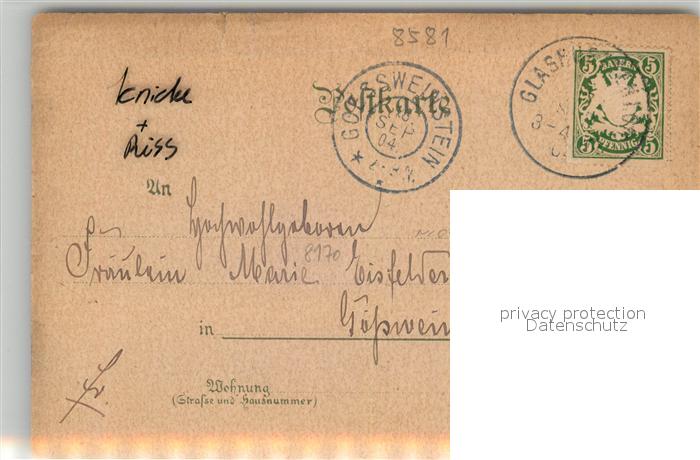 8581
Knicke
+
Riss
Postkarte
GOESSWEINSTEIN
SEP
04
3-4
5 BAYERN 5
5 PFENNIG 5
An
Hochwohlgeboren
Fräulein Marie Eisfelder
8170
in Gößwein
privacy protection
Datenschutz
Wohnung
(Strasse und Hausnummer)
fr.